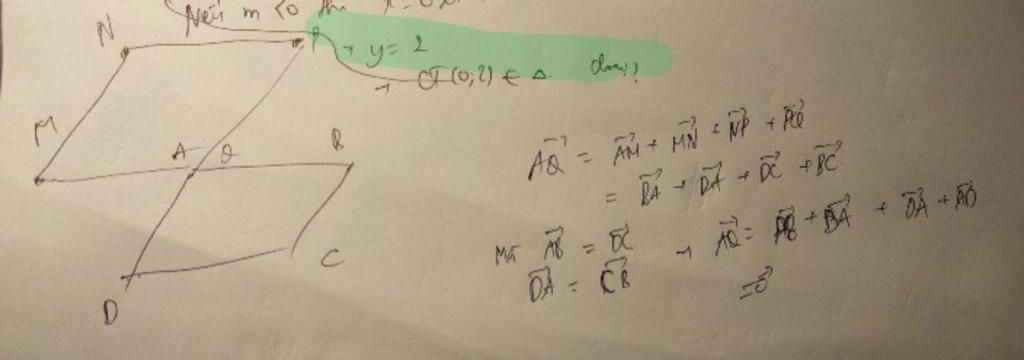 Nếu m < 0 thì x =
N
P
→ y = 2
→ (0; 2) ∈ Δ. đúng?
M
A Q B
D C
AQ→ = AM→ + MN→ + NP→ + PQ→
= BA→ + DA→ + DC→ + BC→
Mà AB→ = DC→ → AQ→ = AB→ + BA→ + DA→ + AD→
DA→ = CB→ = 0→